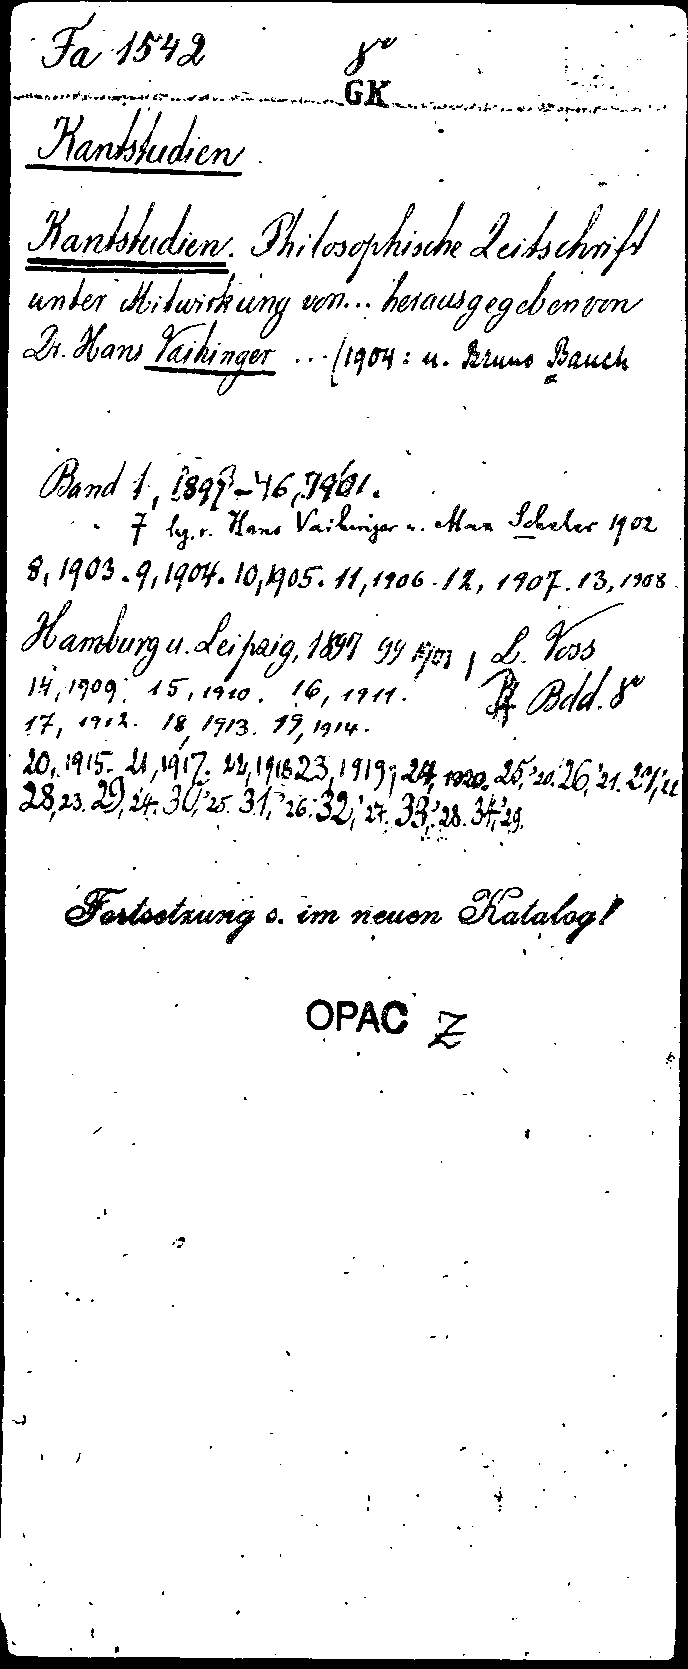 Fa 1542 8°
GK
Kantstudien
Kantstudien. Philosophische Zeitschrift
unter Mitwirkung von... herausgegeben von
Dr. Hans Vaihinger ... (1904: u. Bruno Bauch
Band 1, 1897-46, 1901.
" 7 hg. v. Hans Vaihinger u. Max Scheler 1902
8, 1903. 9, 1904. 10, 1905. 11, 1906. 12, 1907. 13, 1908
Hamburg u. Leipzig, 1897 99 1901, L. Voss
14, 1909. 15, 1910. 16, 1911. Bdd. 8°
17, 1912. 18, 1913. 19, 1914.
20, 1915. 21, 1917. 22, 1918 23, 1919, 24, 1920. 25,'20. 26,'21. 27,'22
28, 23. 29, 24. 30,'25. 31,'26. 32,'27. 33,'28. 34,'29.
Fortsetzung s. im neuen Katalog!
OPAC Z